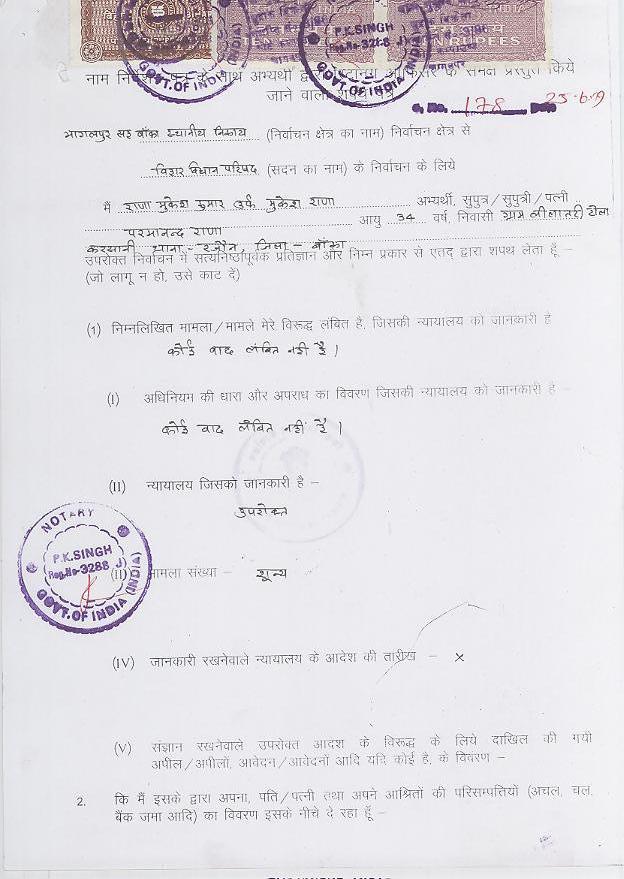 INDIA
RUPEES
P.K.SINGH
Reg.No-3288 J
GOVT.OF INDIA (INDIA)
नाम निर्देशन पत्र के साथ अभ्यर्थी द्वारा के समक्ष प्रस्तुत किये
जाने वाला शपथ पत्र
No. 178 25-6-09
भागलपुर सह बाँका स्थानीय निकाय (निर्वाचन क्षेत्र का नाम) निर्वाचन क्षेत्र से
बिहार विधान परिषद (सदन का नाम) के निर्वाचन के लिये
मैं राणा मुकेश कुमार उर्फ मुकेश राणा अभ्यर्थी, सुपुत्र/सुपुत्री/पत्नी
परमानन्द राणा आयु 34 वर्ष, निवासी ग्राम टोला
थाना- जिला- बाँका
उपरोक्त निर्वाचन में सत्यनिष्ठापूर्वक प्रतिज्ञान और निम्न प्रकार से एतद द्वारा शपथ लेता हूँ –
(जो लागू न हो, उसे काट दें)
(1) निम्नलिखित मामला/मामले मेरे विरूद्ध लंबित है, जिसकी न्यायालय को जानकारी है
कोई वाद लंबित नहीं है।
(I) अधिनियम की धारा और अपराध का विवरण जिसकी न्यायालय को जानकारी है –
कोई वाद लंबित नहीं है।
(II) न्यायालय जिसको जानकारी है –
उपरोक्त
NOTARY
P.K.SINGH
Reg.No-3288 J
GOVT.OF INDIA (INDIA)
(II) मामला संख्या – शून्य
(IV) जानकारी रखनेवाले न्यायालय के आदेश की तारीख – x
(V) संज्ञान रखनेवाले उपरोक्त आदश के विरूद्ध के लिये दाखिल की गयी
अपील/अपीलों, आवेदन/आवेदनों आदि यदि कोई है, के विवरण –
2. कि मैं इसके द्वारा अपना, पति/पत्नी तथा अपने आश्रितों की परिसम्पत्तियों (अचल, चल,
बैंक जमा आदि) का विवरण इसके नीचे दे रहा हूँ –